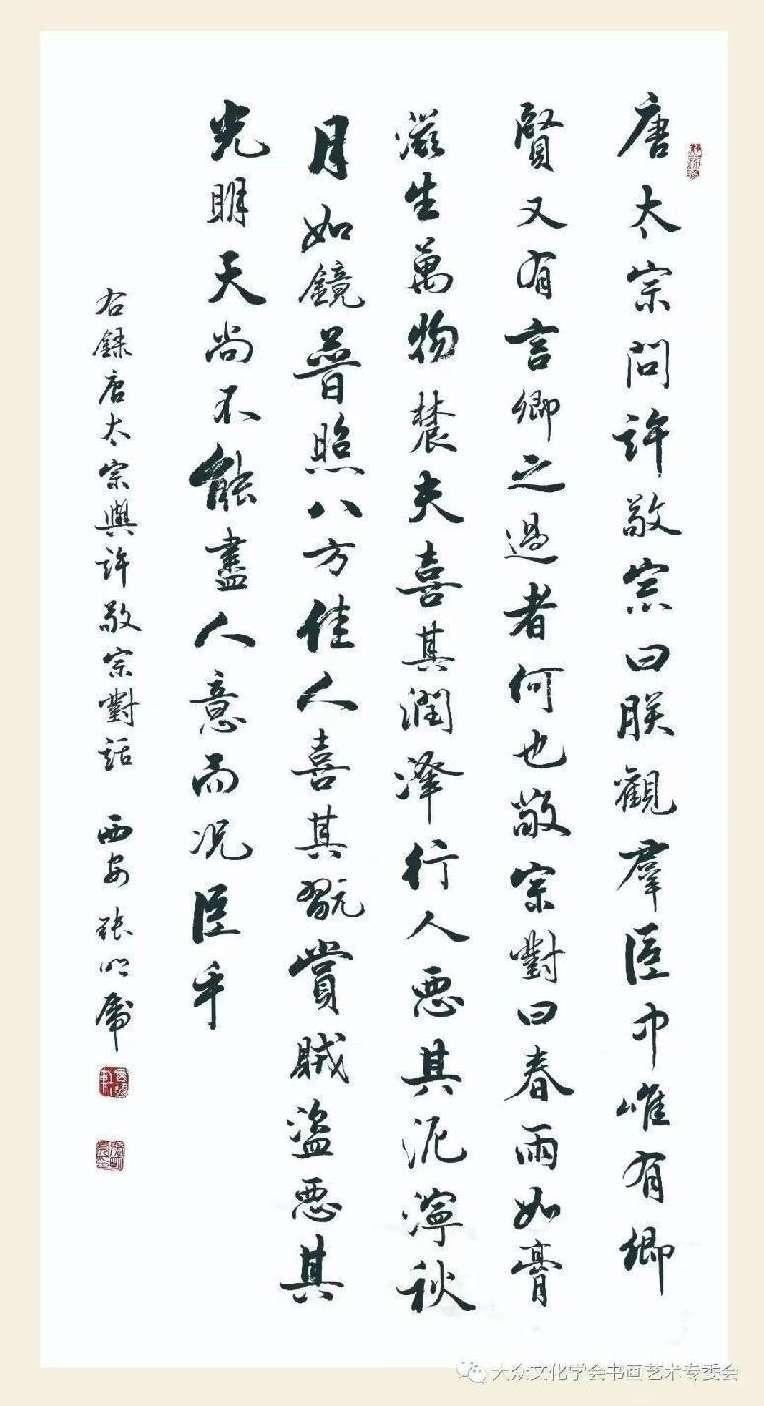 唐太宗問許敬宗曰朕觀羣臣中唯有卿
賢又有言卿之過者何也敬宗對曰春雨如膏
滋生萬物農夫喜其潤澤行人惡其泥濘秋
月如鏡普照八方佳人喜其翫賞賊盜惡其
光明天尚不能盡人意而况臣乎
右録唐太宗與許敬宗對話 西安 張明
大众文化学会书画艺术专委会